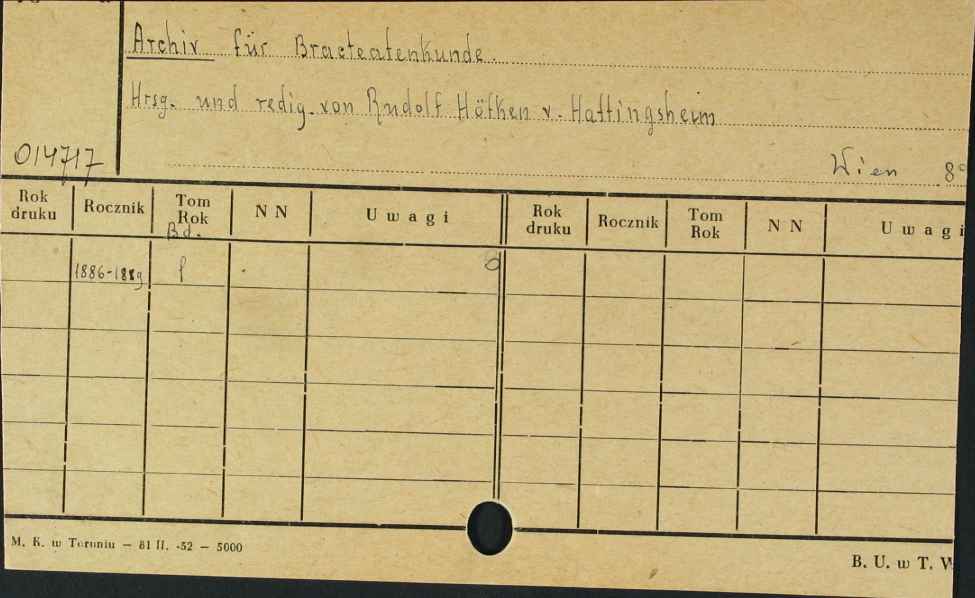 Archiv für Bracteatenkunde.
Hrsg. und redig. von Rudolf Höfken v. Hattingsheim
014717
Wien 8°
Rok druku Rocznik Tom Rok Bd. N N Uwagi Rok druku Rocznik Tom Rok N N Uwagi
1886-1889 1
M. K. w Toruniu — 81 II. -52 — 5000
B. U. w T. W